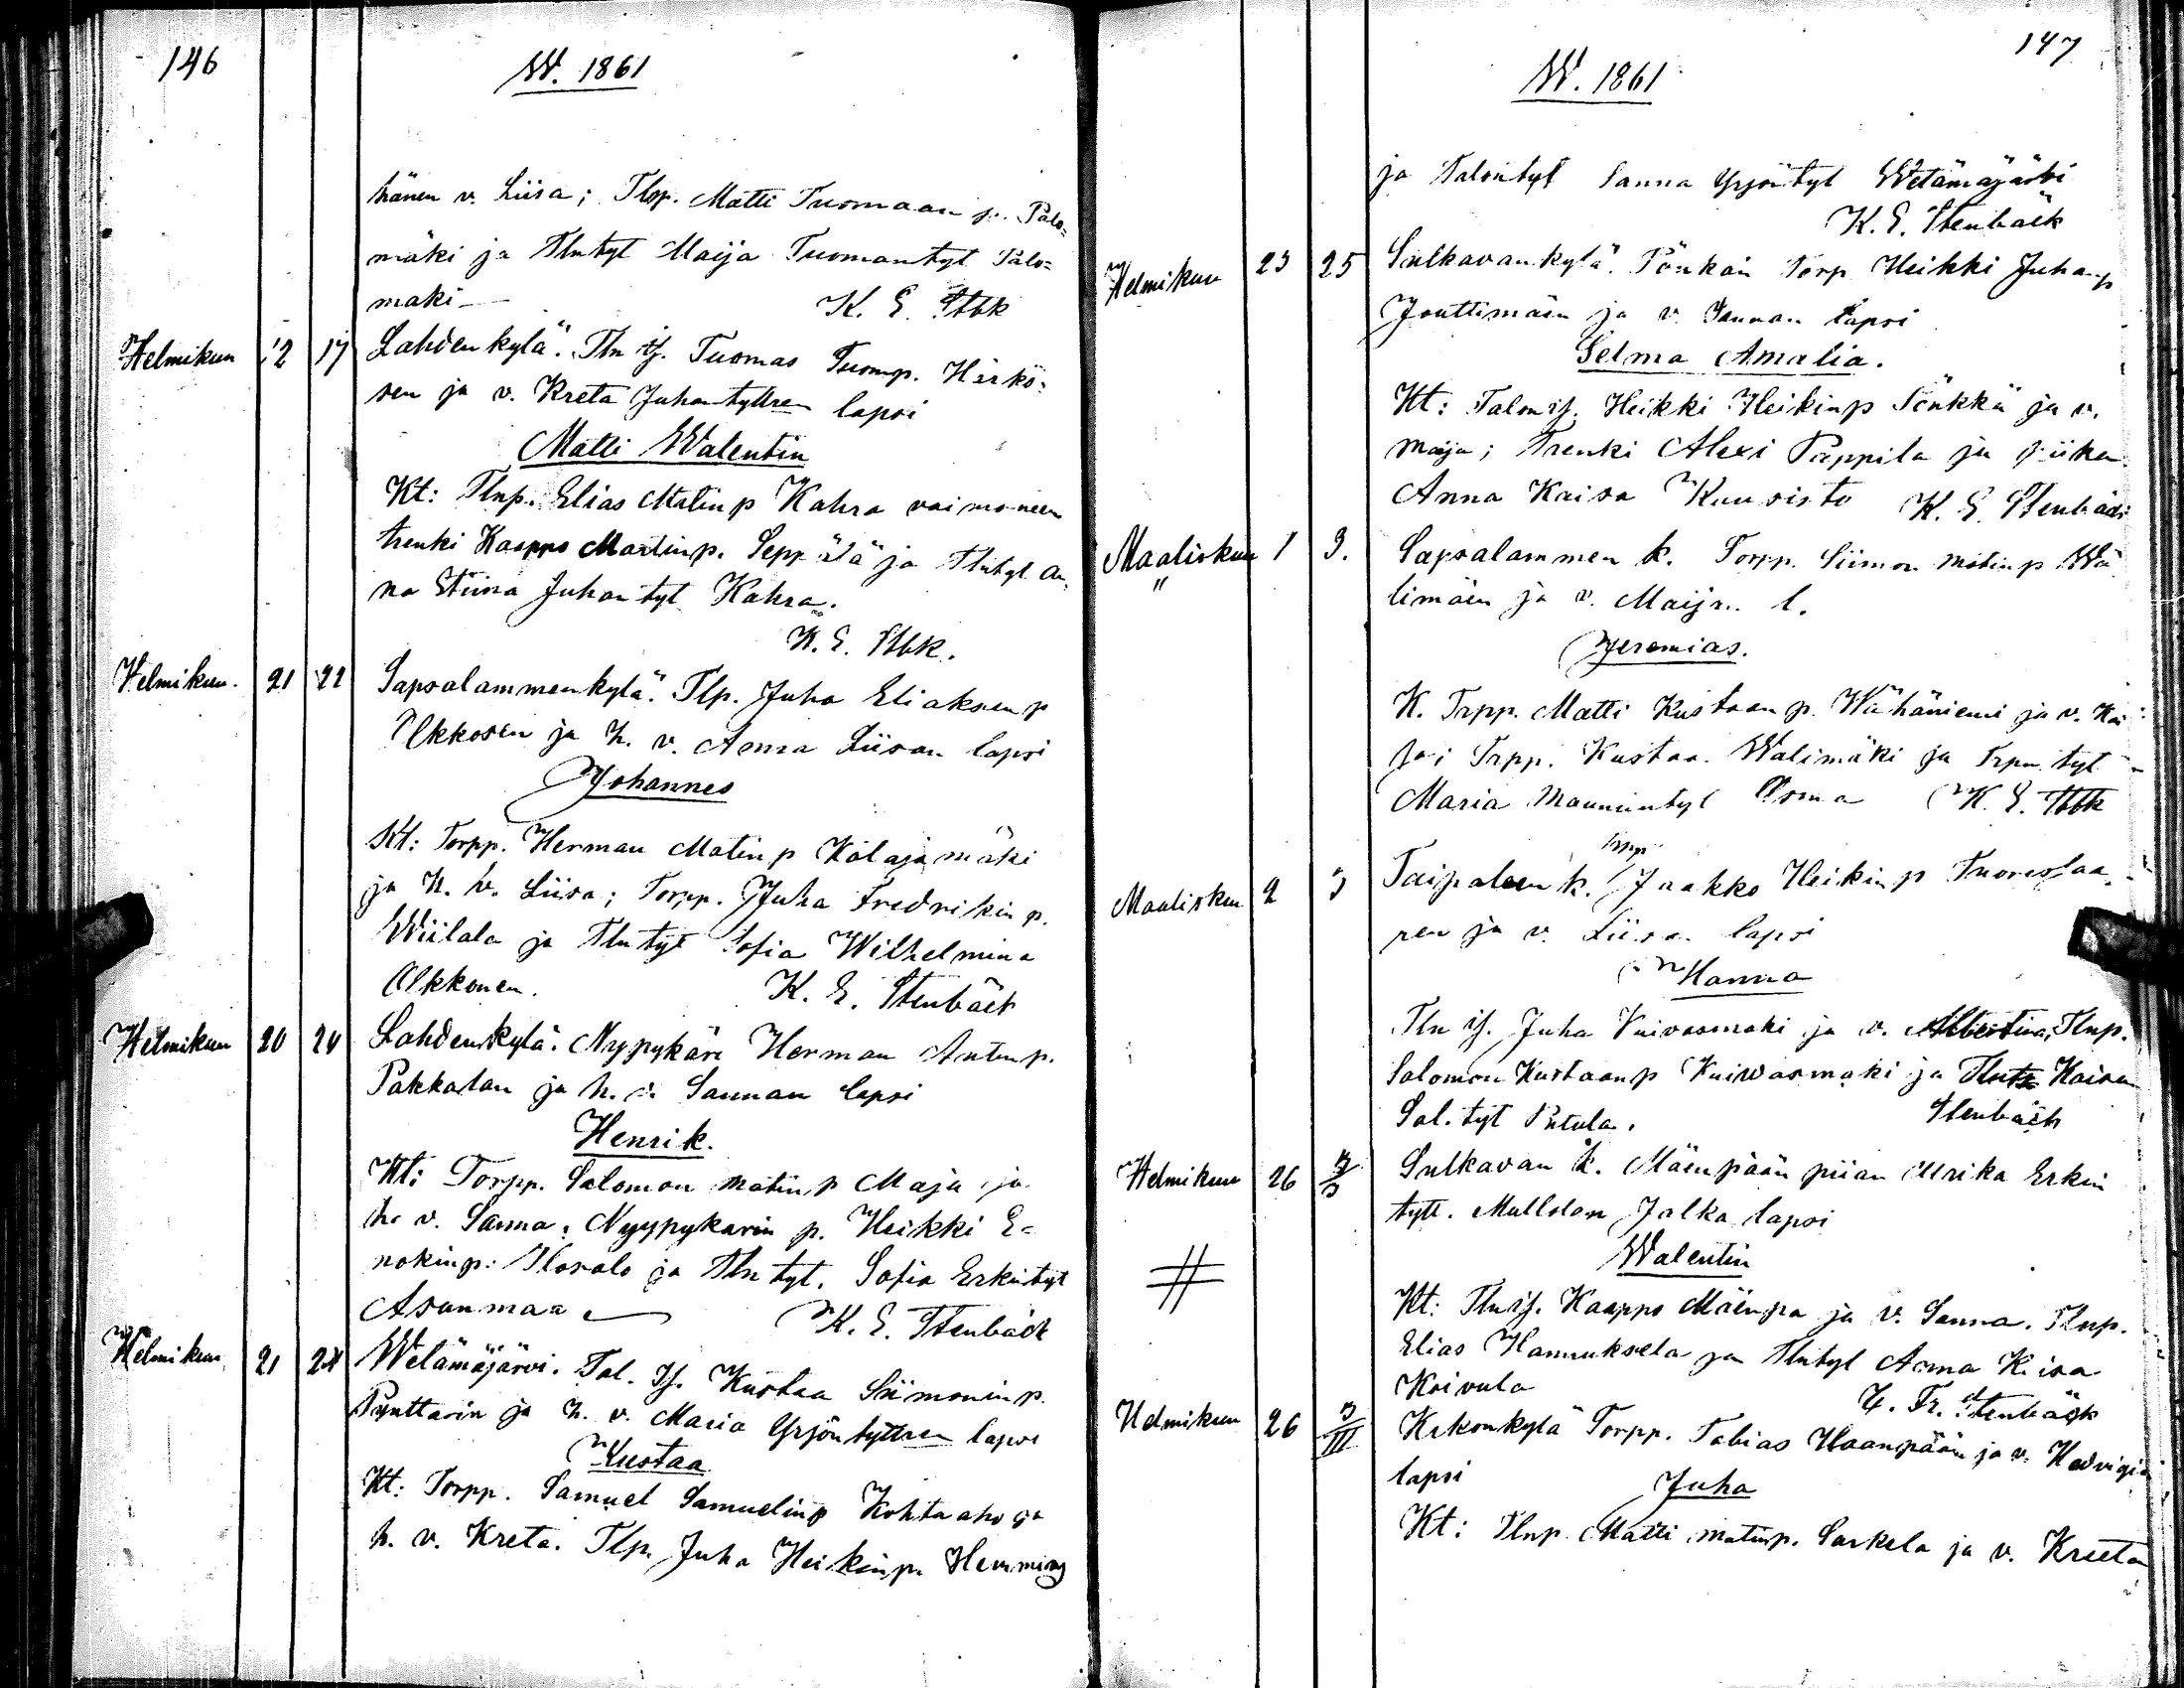 146
W. 1861
hänen v. Liisa; Tlsp. Matti Tuomaan p. Palo=
mäki ja Tlntyt Maija Tuomantyt Palo=
mäki K. E. Stbk
Helmikun 12 17 Lahdenkylä. Tln isj. Tuomas Tuomp. Hirkö=
sen ja v. Kreta Juhantyttren lapsi
Matti Walentin
Kt: Tlnp. Elias Matinp Kahra vaimoneen
trenki Kaappo Martinp. Seppälä ja Tlntyt An
na Stiina Juhantyt Kahra.
K. E. Stbk.
Helmikun. 21 22 Sapsalammenkylä. Tlp. Juha Eliaksen p
Ulkkosen ja h. v. Anna Liisan lapsi
Johannes
Kt: Torpp. Herman Matin p Kalajamäki
ja h. v. Liisa; Torpp. Juha Fredrikin p.
Wiitala ja Tlntyt Sofia Wilhelmina
Ulkkonen. K. E. Stenbäck
Helmikun 20 24 Lahdenkylä. Nyypykäri Herman Antinp.
Pakkalan ja h. v. Sannan lapsi
Henrik.
Kt: Torpp. Salomon Matin p Maja ja
h. v. Sanna; Nyypykarin p. Heikki E=
nokinp: Ilosalo ja Tlntyt. Sofia Erkintyt
Asunmaa K. E. Stenbäck
Helmikun 21 24 Wetämäjärvi. Tal. Isj. Kustaa Siimonin p.
Pynttarin ja h. v. Maria Yrjöntyttren lapsi
Kustaa
Kt: Torpp. Samuel Samuelinp Kohtaaho ja
h. v. Kreta. Tlp. Juha Heikinp. Hemming
147
W. 1861
ja Talontyt Sanna Yrjöntyt Wetämäjärvi
K. E. Stenbäck
Helmikun 23 25 Sulkavankylä. Pönkän Torp Heikki Juhanp
Jouttimäen ja v. Sannan lapsi
Selma Amalia.
Kt: Talonisj. Heikki Heikinp Pönkkä ja v.
Maija; Trenki Alexi Pappila ja piika
Anna Kaisa Kuusisto K. E. Stenbäck
Maaliskun 1 3. Sapsalammen k. Torpp. Siimon Matinp Wä
limäen ja v. Maijan l.
"
Jeremias.
K. Trpp. Matti Kustaan p. Wähäniemi ja v. Kai
sa; Trpp. Kustaa Walimäki ja Trpntyt
Maria Mauniintyt K. E. Stbk
Maaliskun 2 3 Taipaleen k. Trpp Jaakko Heikinp Tuorestaa
ren ja v. Liisan lapsi
Hanna
Tln isj. Juha Kuivasmäki ja v. Albertina, Tlnp.
Salomon Kustaanp Kuiwasmäki ja Kaisa
Sal. tyt Putula. Stenbäck
Helmikun 26 3/3 Sulkavan k. Mäenpään piian Ulrika Erkin
tytt. Jalka lapsi
Walentin
Kt: Tlnisj. Kaappo Mäenpä ja v. Sanna. Tlnp.
Elias Hannuksela ja Tlntyt Anna Kaisa
Koivula Fr. Stenbäck
Helmikun 26 3/III Torpp. Tobias Haanpään ja v. Hedvigin
lapsi Juha
Kt: Tlnp. Matti Matinp. Sarkela ja v. Kreeta